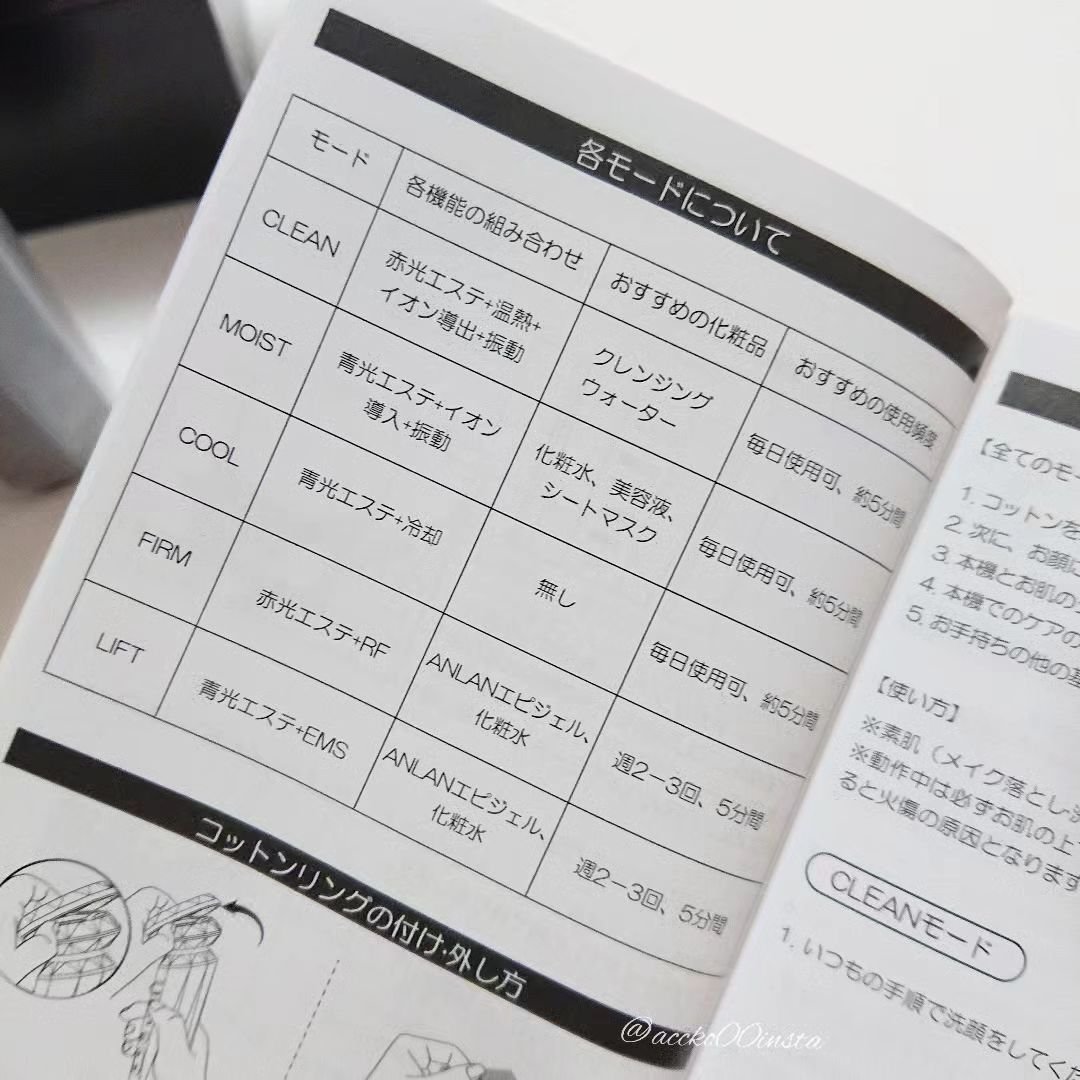 各モードについて
モード
各機能の組み合わせ
おすすめの化粧品
おすすめの使用頻度
CLEAN
赤光エステ+温熱+
イオン導出+振動
クレンジング
ウォーター
毎日使用可、約5分間
MOIST
青光エステ+イオン
導入+振動
化粧水、美容液、
シートマスク
毎日使用可、約5分間
COOL
青光エステ+冷却
無し
毎日使用可、約5分間
FIRM
赤光エステ+RF
ANLANエピジェル、
化粧水
週2－3回、5分間
LIFT
青光エステ+EMS
ANLANエピジェル、
化粧水
週2－3回、5分間
コットンリングの付け·外し方
【全てのモー
1. コットンを
2. 次に、お顔に
3. 本機とお肌の
4. 本機でのケアの
5. お手持ちの他の基
【使い方】
※素肌（メイク落とし·洗
※動作中は必ずお肌の上
ると火傷の原因となります
CLEANモード
1. いつもの手順で洗顔をしてくだ
@accko00insta